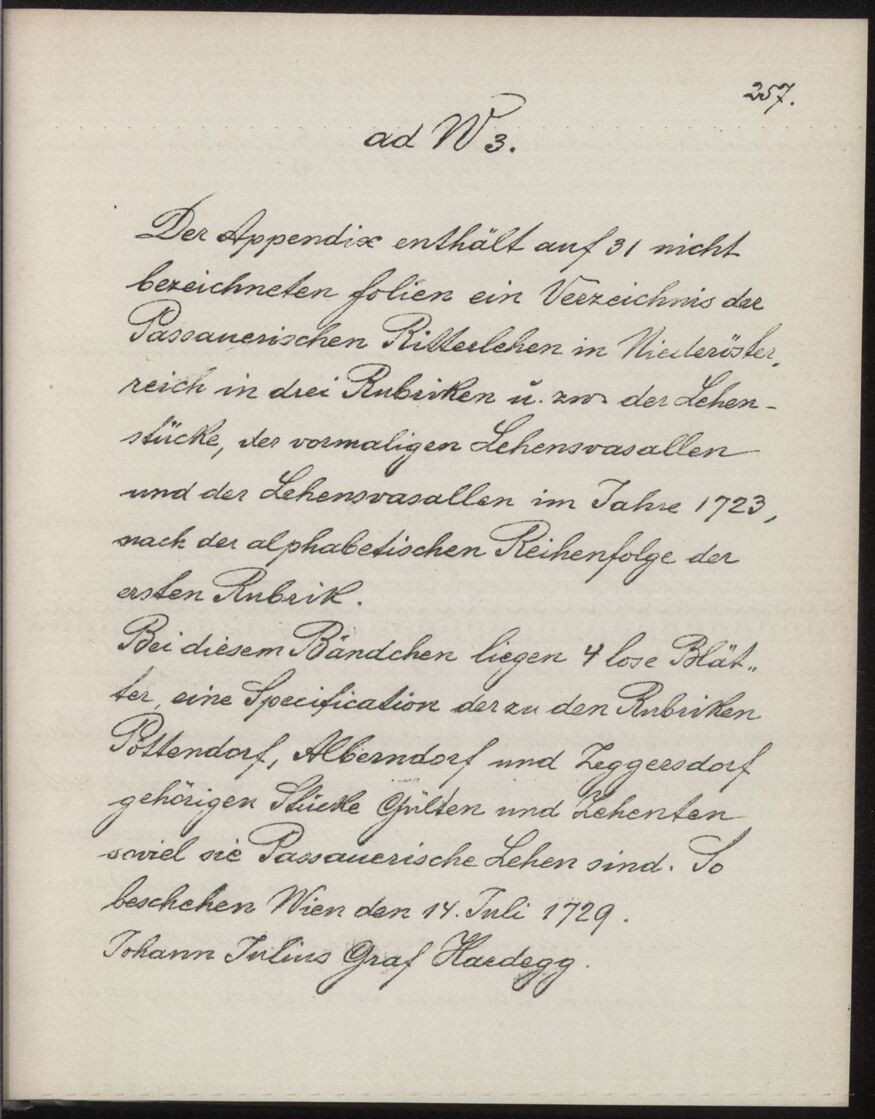 257.
ad W 3.
Der Appendix enthält auf 31 nicht
bezeichneten folien ein Verzeichnis der
Passauerischen Ritterlehen in Niederöster,
reich in drei Rubriken u. zw. der Lehen-
stücke, der vormaligen Lehensvasallen
und der Lehensvasallen im Jahre 1723,
nach der alphabetischen Reihenfolge der
ersten Rubrik.
Bei diesem Bändchen liegen 4 lose Blät„
ter, eine Specification der zu den Rubriken
Pottendorf, Alberndorf und Zeggersdorf
gehörigen Stücke Gülten und Zehenten
soviel sie Passauerische Lehen sind. So
beschehen Wien den 14. Juli 1729.
Johann Julius Graf Hardegg.